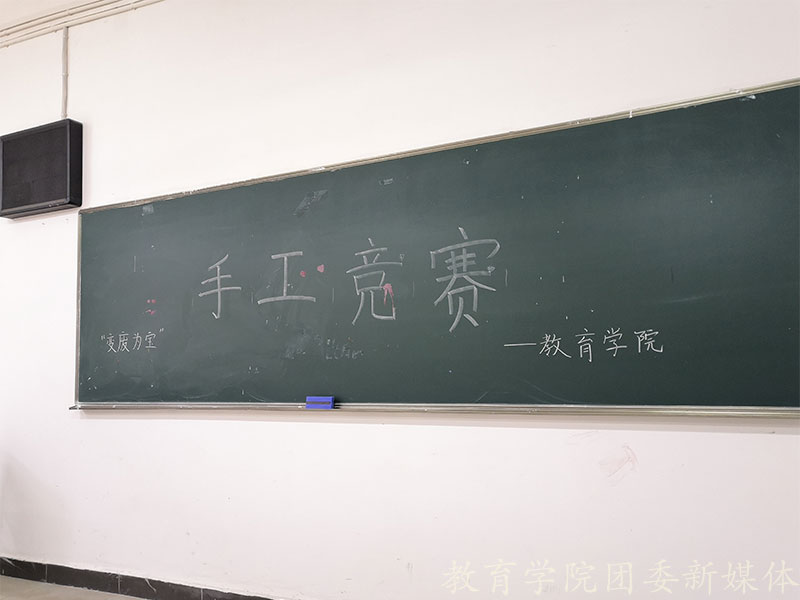 手工竞赛
“变废为宝”
—教育学院
教育学院团委新媒体